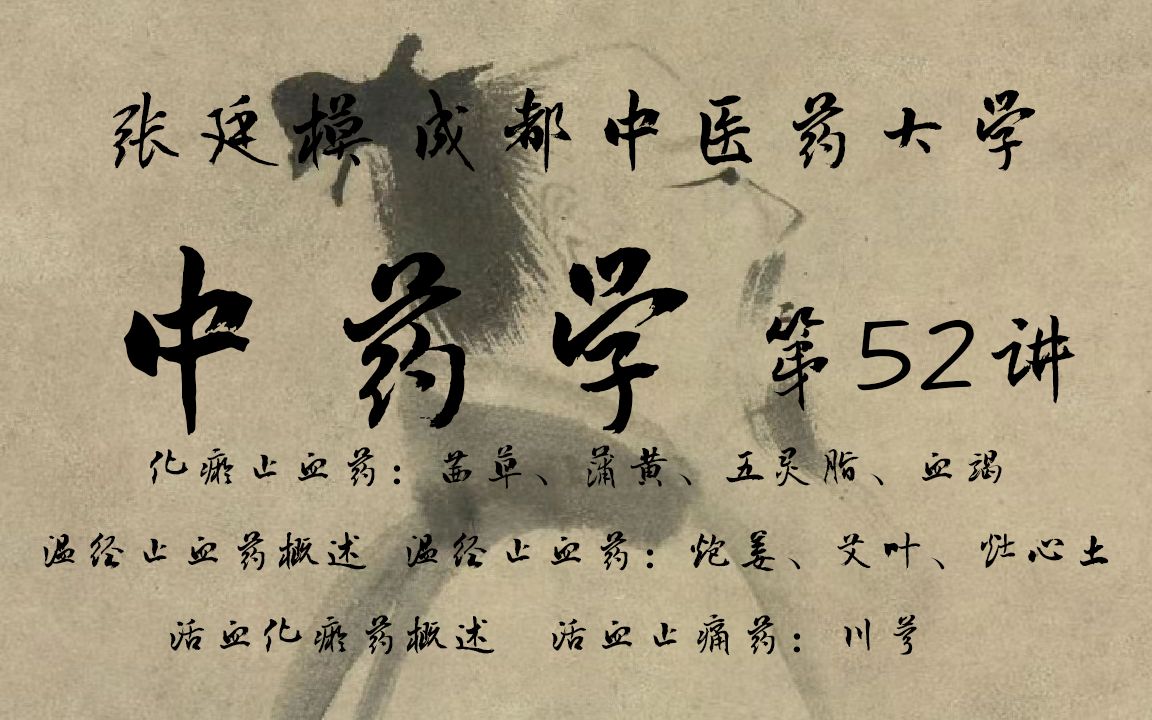 张廷模成都中医药大学
中药学 第52讲
化瘀止血药：茜草、蒲黄、五灵脂、血竭
温经止血药概述 温经止血药：炮姜、艾叶、灶心土
活血化瘀药概述 活血止痛药：川芎